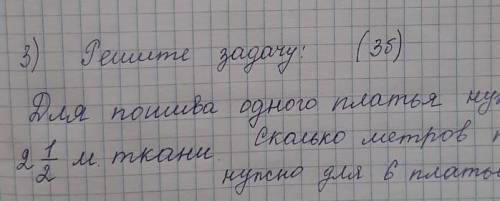 3) Решите задачу: (3б)
Для пошива одного платья
2 1/2 м ткани. Сколько метров
нужно для 6